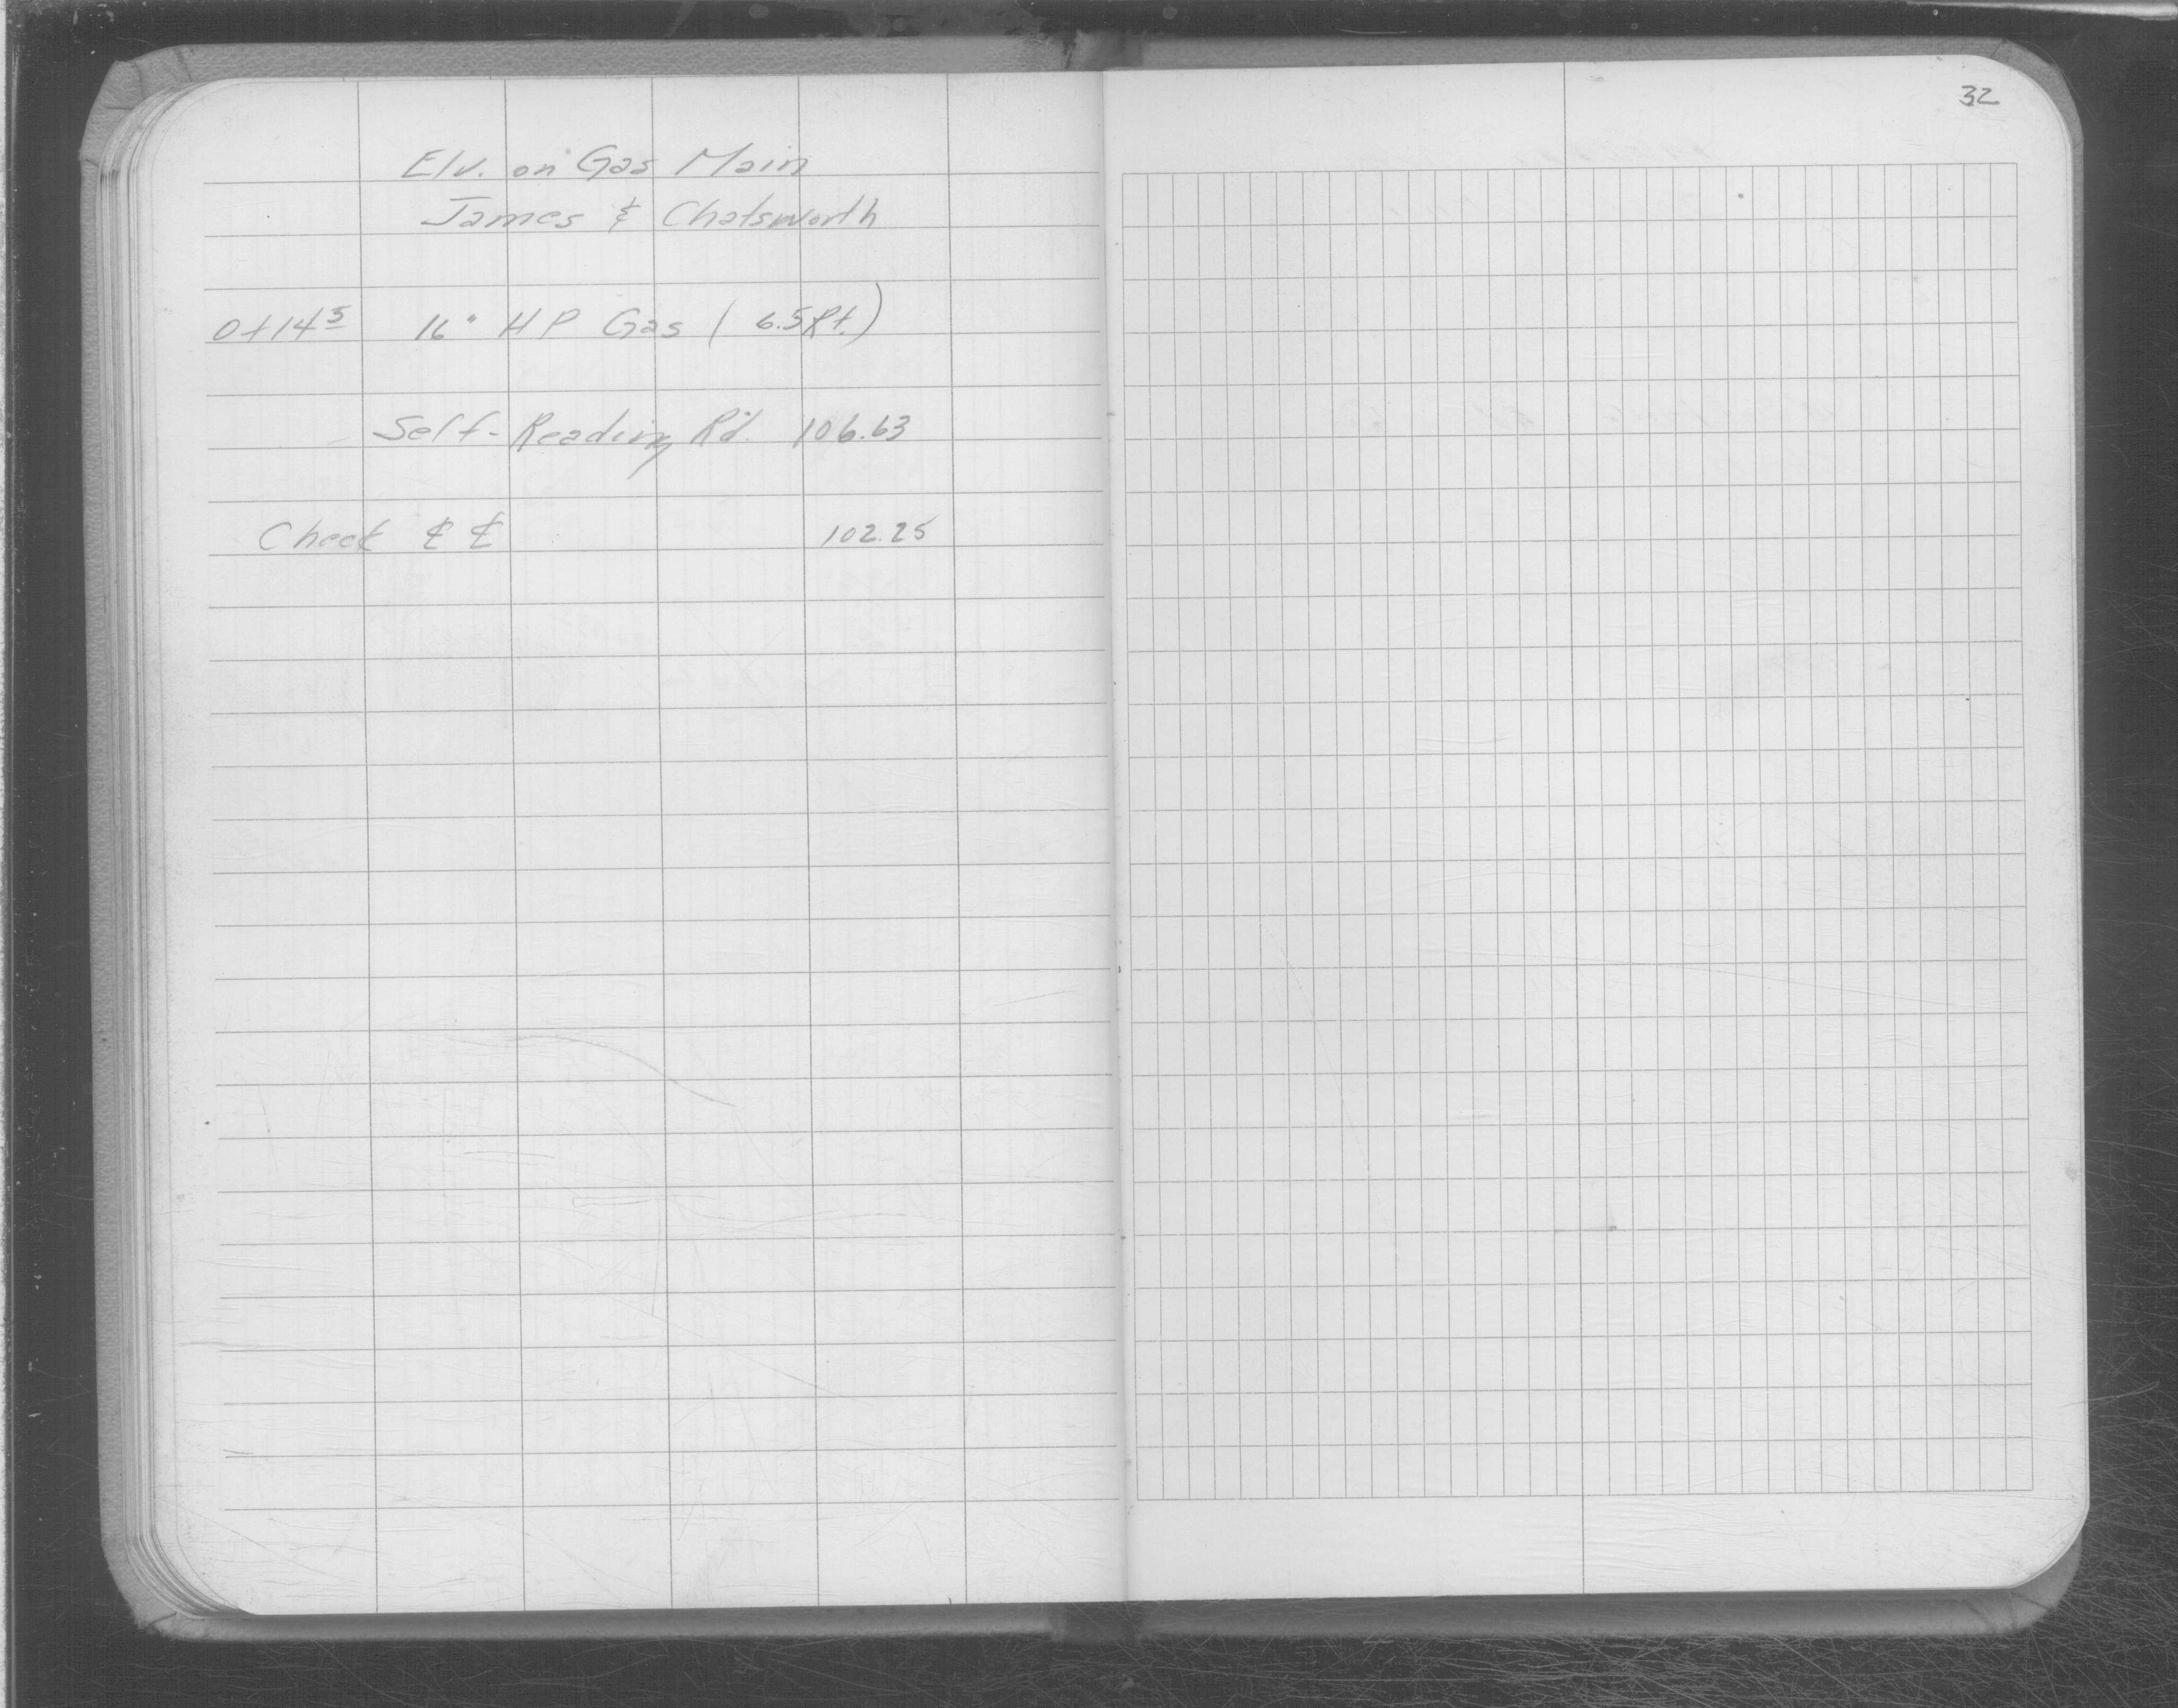 32
Elv. on Gas Main
James & Chatsworth
0+14⁵ 16" HP Gas ( 6.5 Rt.)
Self-Reading Rd. 106.63
Check ℄ ℄ 102.25